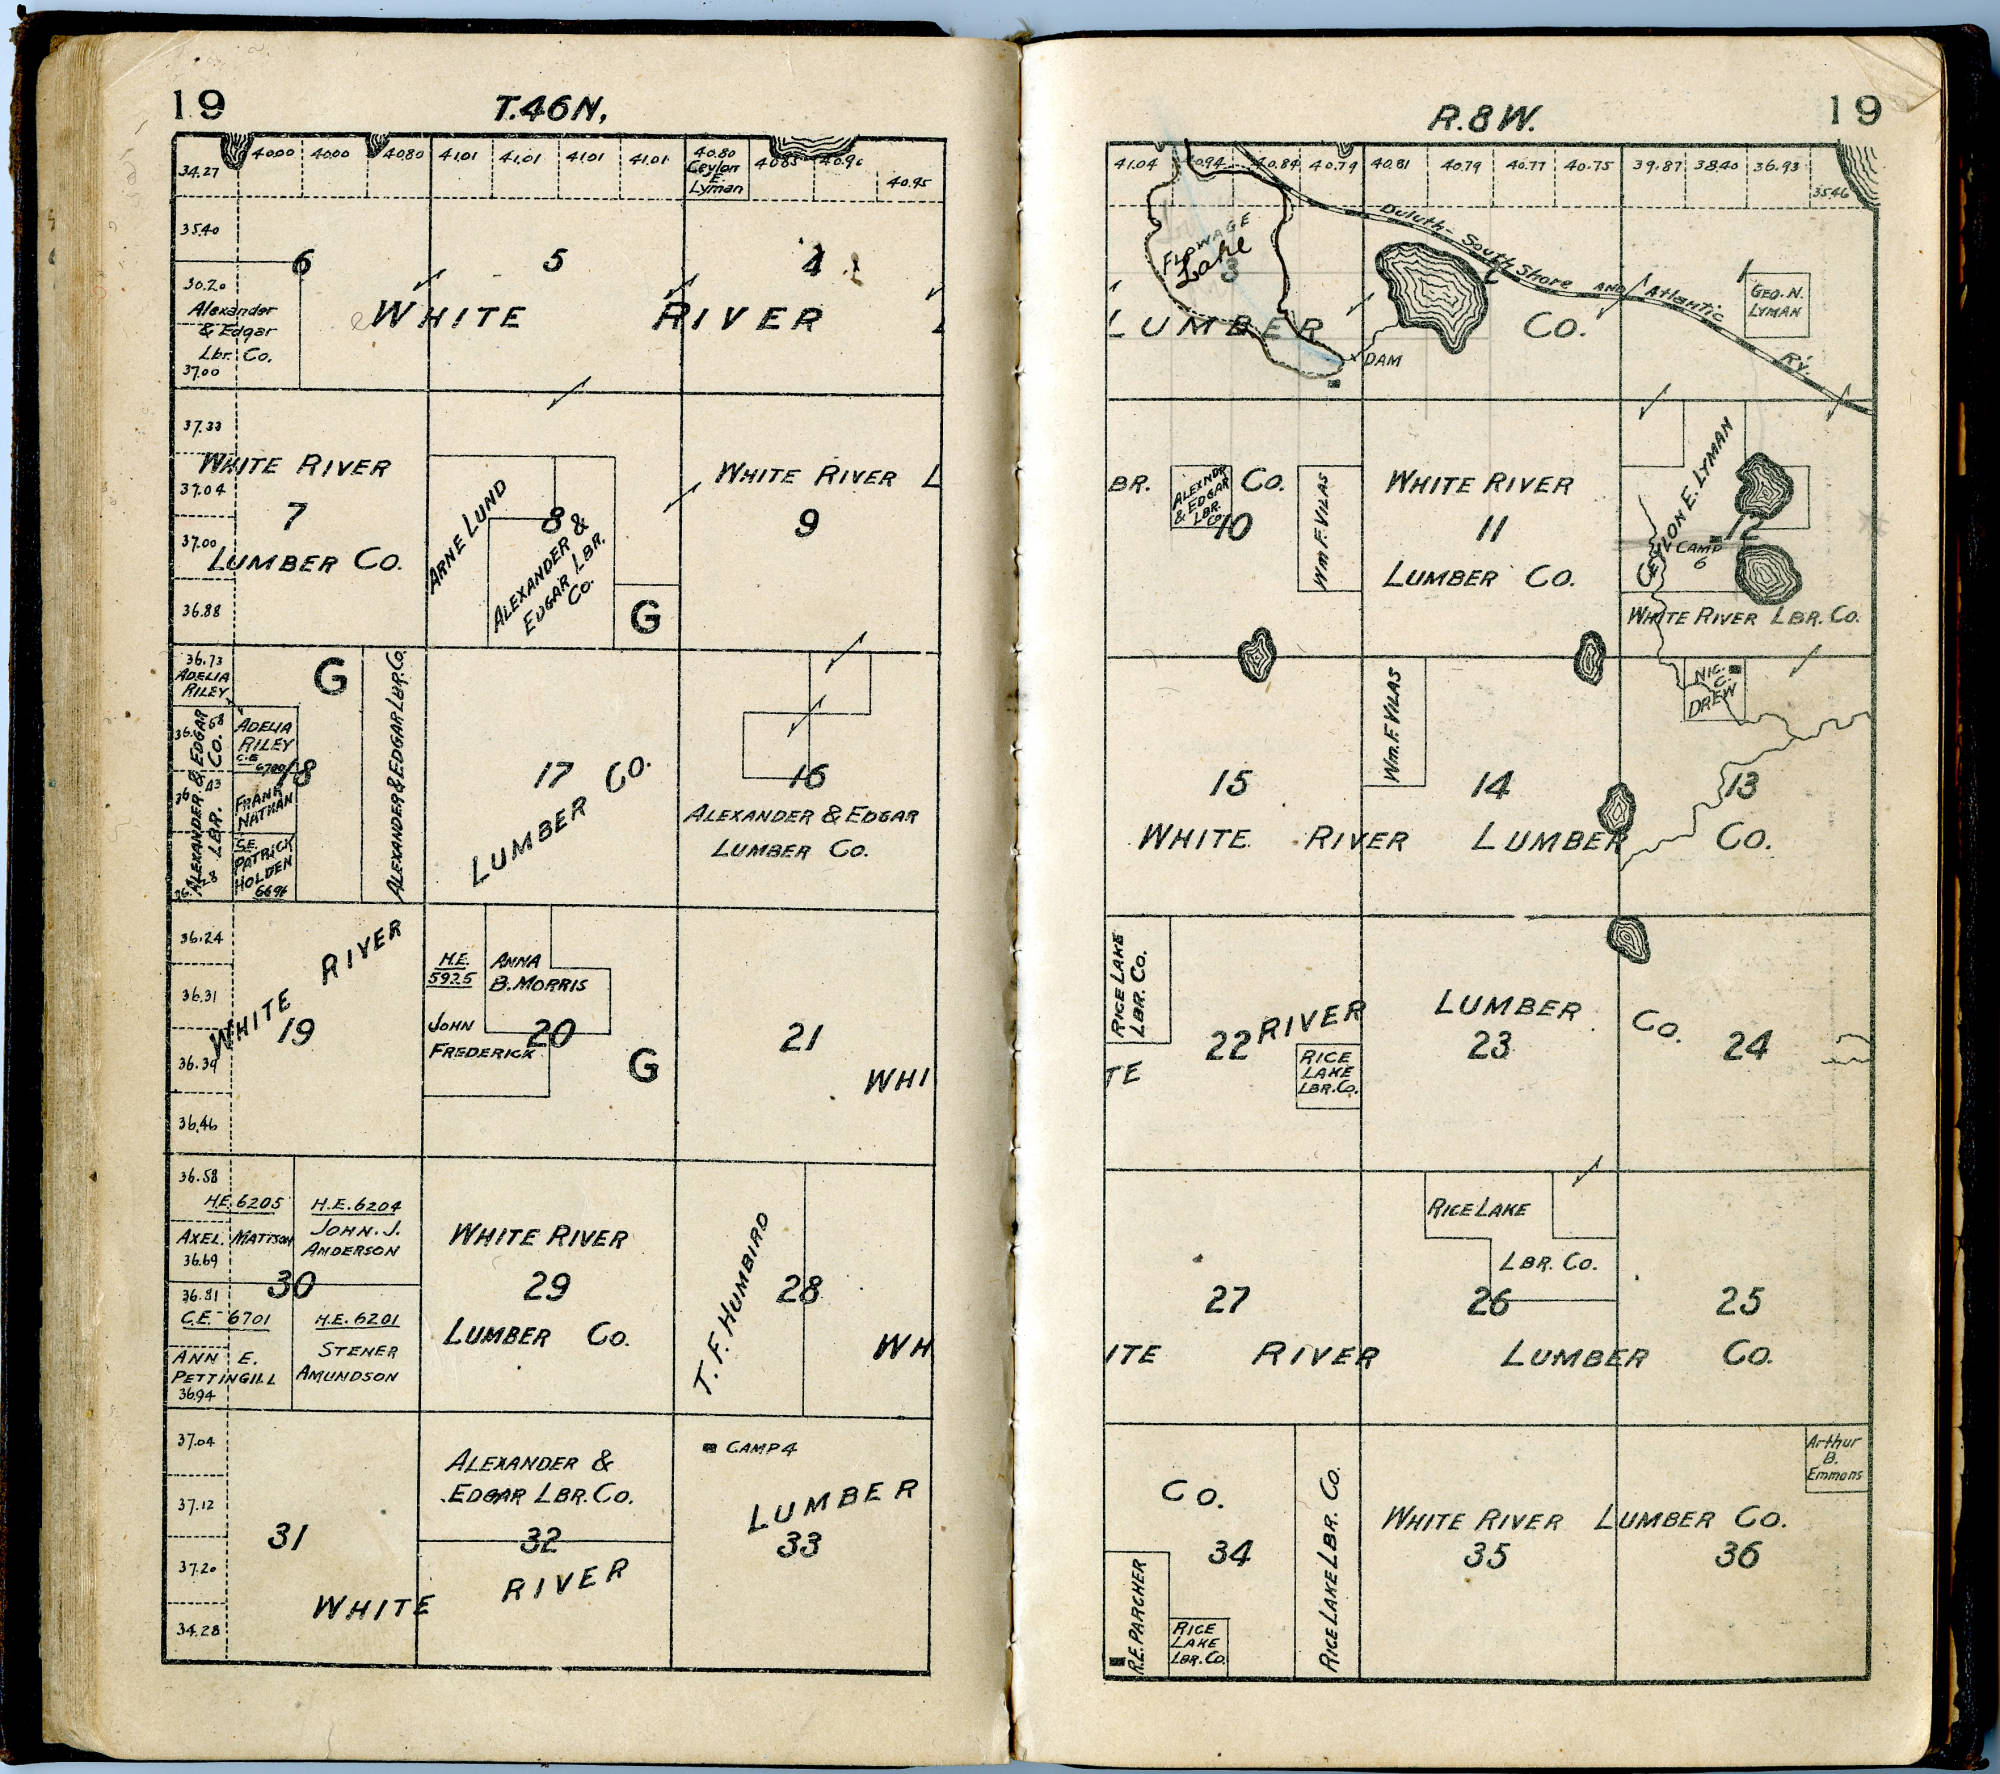 19
T.46N,
34.27
40.00
40.00
40.80
41.01
41.01
41.01
41.01
40.80
Ceylon
E.
Lyman
40.85
40.96
40.95
35.40
6
5
4
30.20
Alexander
& Edgar
Lbr. Co.
37.00
WHITE RIVER L
37.33
WHITE RIVER
37.04
7
37.00
LUMBER CO.
36.88
ARNE LUND
8
ALEXANDER &
EDGAR LBR.
CO.
G
WHITE RIVER L
9
36.73
ADELIA
RILEY
G
36.68
ALEXANDER & EDGAR
LBR. CO.
ADELIA
RILEY
C.E.
6700
18
36.43
FRANK
NATHAN
S.E.
PATRICK
HOLDEN
6696
ALEXANDER & EDGAR LBR. CO.
17
LUMBER CO.
16
ALEXANDER & EDGAR
LUMBER CO.
36.24
WHITE RIVER
36.31
19
36.39
36.46
H.E.
5925
ANNA
B. MORRIS
JOHN
FREDERICK
20
G
21
WHI
36.58
H.E. 6205
H.E. 6204
AXEL MATTSON
JOHN. J.
ANDERSON
36.69
30
36.81
C.E. 6701
H.E. 6201
ANN E.
PETTINGILL
36.94
STENER
AMUNDSON
WHITE RIVER
29
LUMBER CO.
T. F. HUMBIRD
28
WH
37.04
37.12
31
37.20
34.28
WHITE
ALEXANDER &
EDGAR LBR. CO.
32
RIVER
CAMP 4
LUMBER
33
R.8W.
19
41.04
40.94
40.84
40.79
40.81
40.79
40.77
40.75
39.87
38.40
36.93
35.46
FLOWAGE
Lake
3
Duluth- South Shore AND Atlantic Ry.
GEO. N.
LYMAN
LUMBER CO.
DAM
BR.
ALEXNDR
& EDGAR
LBR.
CO.
CO.
10
Wm F. VILAS
WHITE RIVER
11
LUMBER CO.
CEYLON E. LYMAN
12
CAMP
6
WHITE RIVER LBR. CO.
Wm. F. VILAS
NIC.
C.
DREW
15
14
13
WHITE RIVER LUMBER CO.
RICE LAKE
LBR. CO.
TE
22
RIVER
RICE
LAKE
LBR. CO.
LUMBER
23
CO.
24
RICE LAKE
LBR. CO.
27
26
25
ITE RIVER LUMBER CO.
CO.
34
R.E. PARCHER
RICE
LAKE
LBR. CO.
RICE LAKE LBR. CO.
WHITE RIVER LUMBER CO.
35
36
Arthur
B.
Emmons